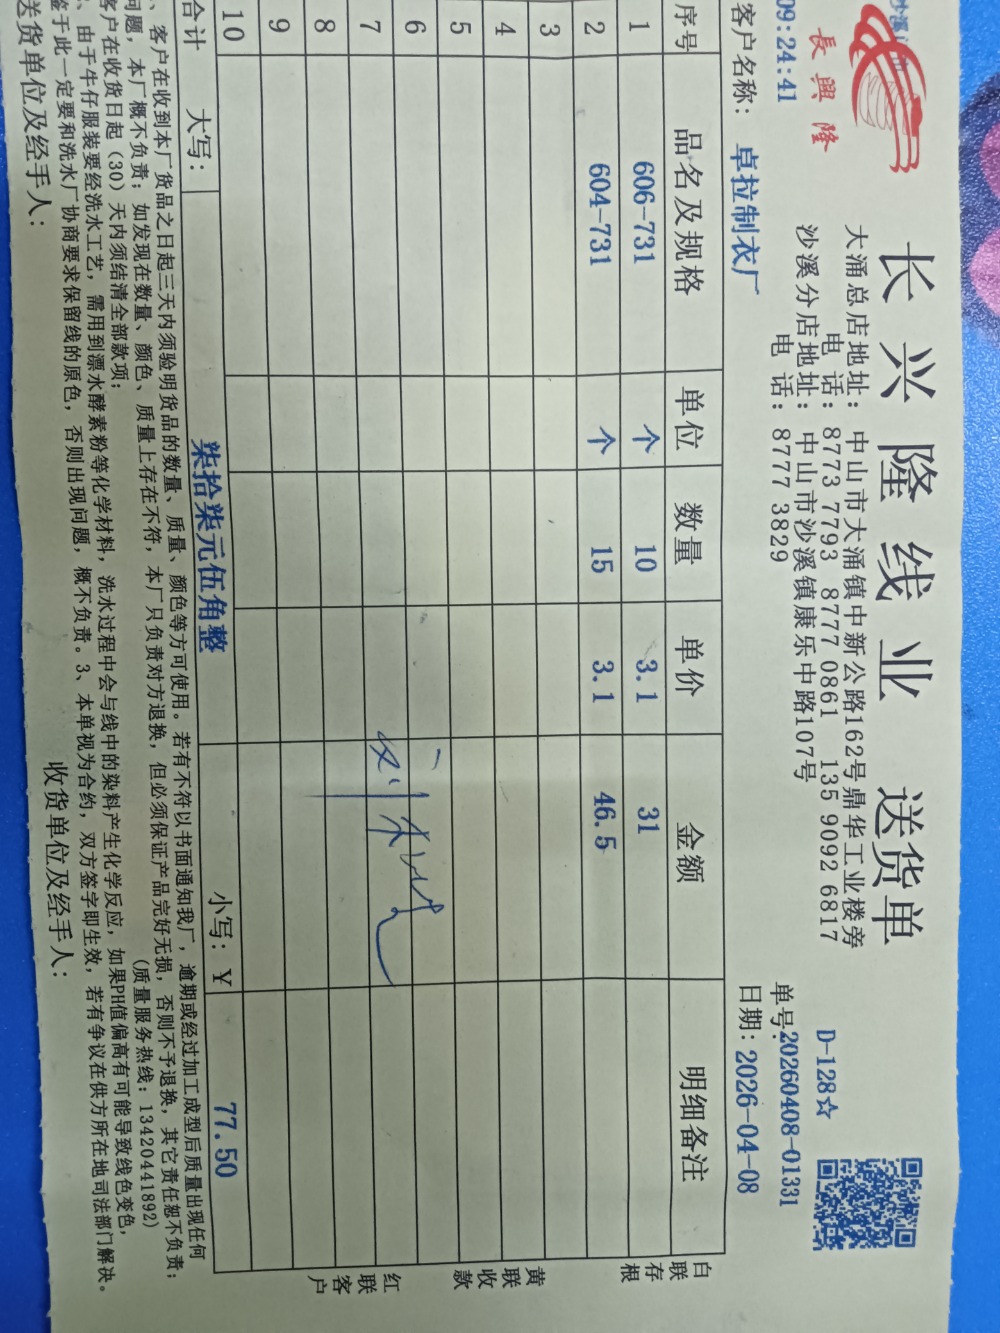 長興隆
长兴隆线业 送货单
大涌总店地址: 中山市大涌镇中新公路162号鼎华工业楼旁
电话: 8773 7793 8777 0861 135 9092 6817
沙溪分店地址: 中山市沙溪镇康乐中路107号
电话: 8777 3829
D-128☆
09:24:41
单号:20260408-01331
客户名称: 卓拉制衣厂
日期: 2026-04-08
序号 品名及规格 单位 数量 单价 金额 明细备注
1 606-731 个 10 3.1 31
2 604-731 个 15 3.1 46.5
3
4
5
6
7
8
9
10
合计 大写: 柒拾柒元伍角整 小写: ¥ 77.50
白联存根
黄联收款
红联客户
、客户在收到本厂货品之日起三天内须验明货品的数量、质量、颜色等方可使用。若有不符以书面通知我厂,逾期或经过加工成型后质量出现任何
问题,本厂概不负责;如发现在数量、颜色、质量上存在不符,本厂只负责对方退换,但必须保证产品完好无损,否则不予退换,其它责任恕不负责;
客户在收货日起(30)天内须结清全部款项; (质量服务热线: 13420441892)
、由于牛仔服装要经洗水工艺,需用到漂水酵素粉等化学材料,洗水过程中会与线中的染料产生化学反应,如果PH值偏高有可能导致线色变色,
鉴于此一定要和洗水厂协商要求保留线的原色,否则出现问题,概不负责。3、本单视为合约,双方签字即生效,若有争议在供方所在地司法部门解决。
送货单位及经手人: 收货单位及经手人: